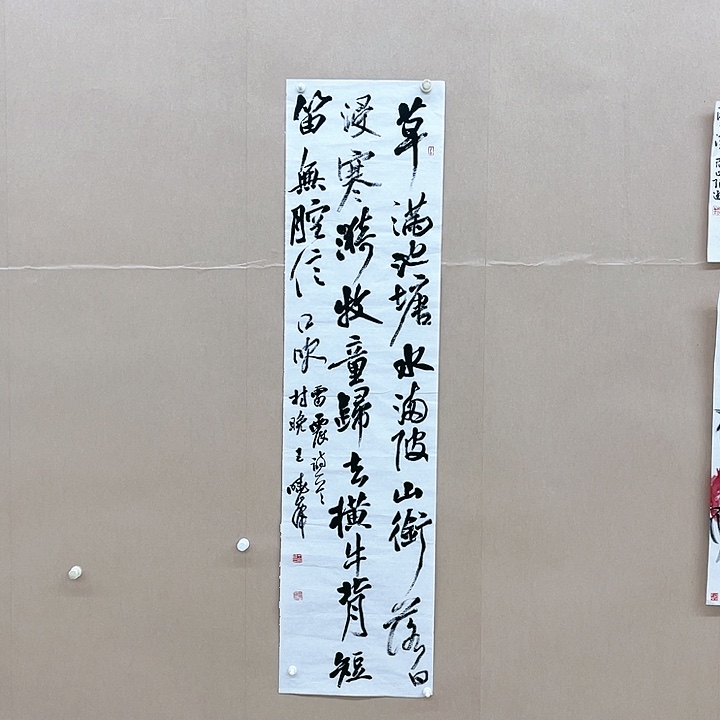 草滿池塘水滿陂山銜落日
浸寒漪牧童歸去橫牛背短
笛無腔信口吹
雷震詩
村晚 王